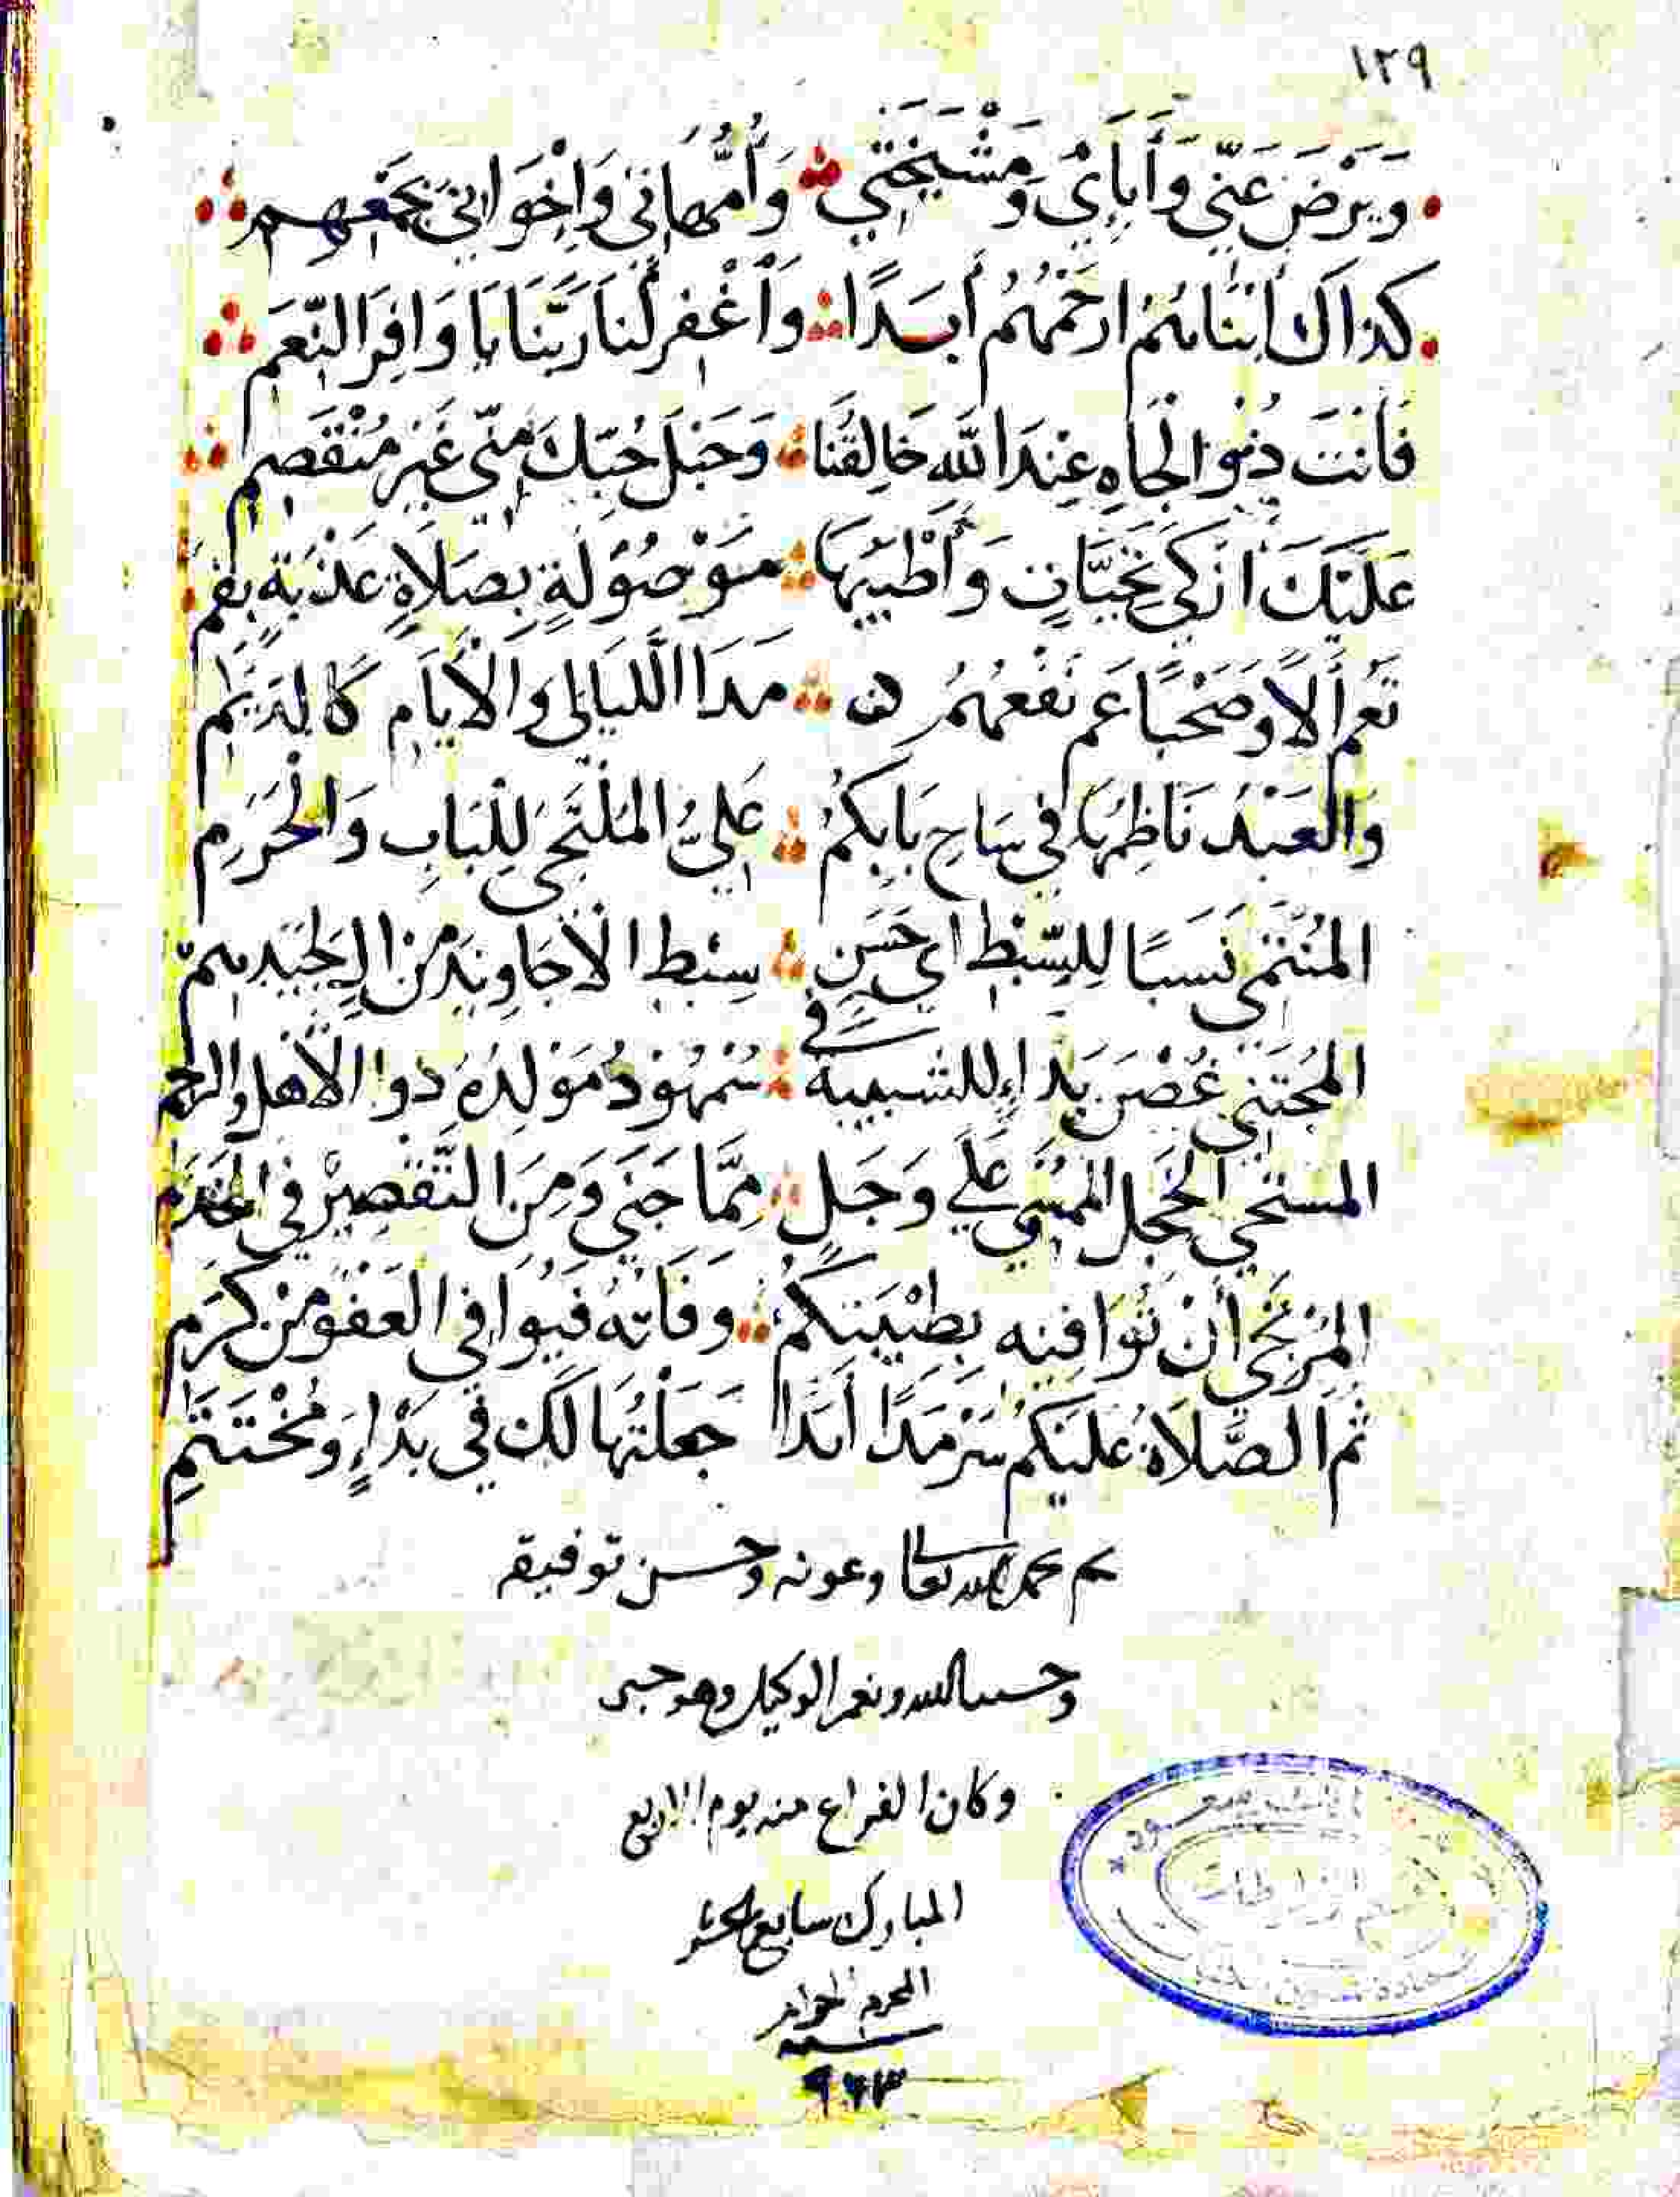 ١٢٩
وَيَرْضَ عَنِّي وَأَبَايْ وَمَشْيَخَتِي وَأُمَّهَاتِي وَإِخْوَانِي بِجَمْعِهِم
كذاك أبنائهم ارحمهم أبَدًا وَاغْفِر لَنَا رَبَّنَا يَا وَافِرَ النِّعَمِ
فَأَنتَ ذُو الْجَاهِ عِنْدَ الله خَالِقُنَا وَحَبْلُ حُبِّكَ مِنّي غَيْر مُنْفَصِم
عَلَيْكَ أزكَى تَحِيَّاتٍ وَأَطْيَبُهَا مَوْصُولَةٍ بِصَلَاةٍ عَذْبَةٍ بِفَمِ
تَعُم ألاً وَصَحْبًا عَم نَفْعُهُمُ مَدَا اللَّيَالِى وَالْأَيَامِ كَالدِّيَمِ
وَالْعَبْدُ نَاظِمُهَا فى سَاحِ بَابِكمُ عَلِيُّ الْمُلْتَجِي لِلْبَابِ وَالْحَرَمِ
المُنْتَمِي نَسَبًا لِلسِّبْطِ اي حَسَنٍ سِبْطِ الأجَاوِيدِ
المُجْتَنِي غُصْنَ في للشبيبة سَمْهُودُ مَوْلِدُهُ ذوا الأهل والرحم
المستحي الخَجِلِ المُمْسِي عَلَي وَجَلٍ مِمَّا جَنَي وَمِنَ التَّقْصِيْرِ في الخدَم
المُرْتَجِي أنْ تُوَافِيه بِطَيْبَتِكُمْ وفَاتُهُ في العَفْو مِنْ كَرَمِ
ثُمَّ الصَّلَاةُ عَلَيْكُمْ سَرْمَدًا أَبَدًا جَعَلْتُهَا لَك في بَدْاءٍ وَمُخْتَتَمِ
تم بحمد الله تعالى وعونه وحسن توفيقه
وحسبنا الله ونعم الوكيل وهو حسبي
وكان الفراغ منه يوم الاربع
المبارك سابع
المحرم الحرام
سنة
٩٦٣